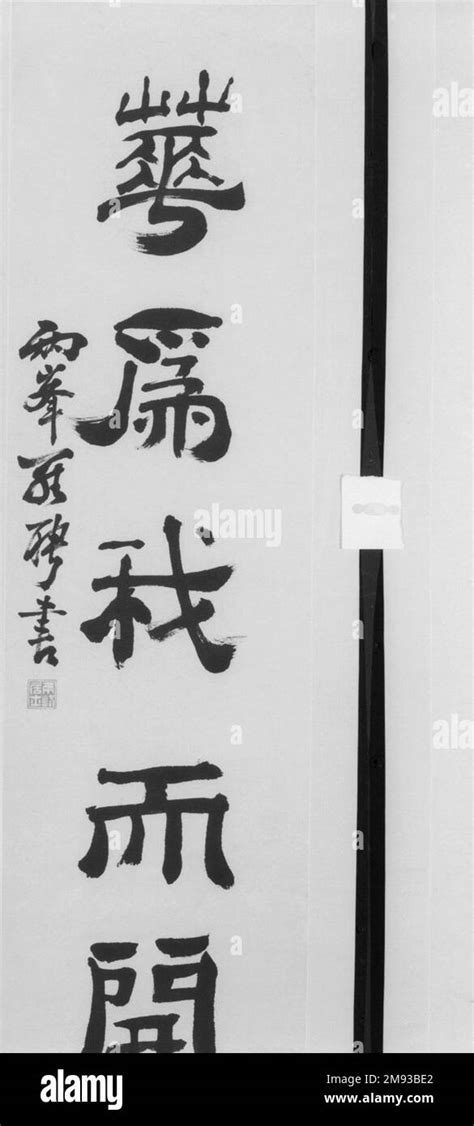 華爲我而開
兩峯羅聘書
alamy
alamy
Image ID: 2M93BE2
www.alamy.com